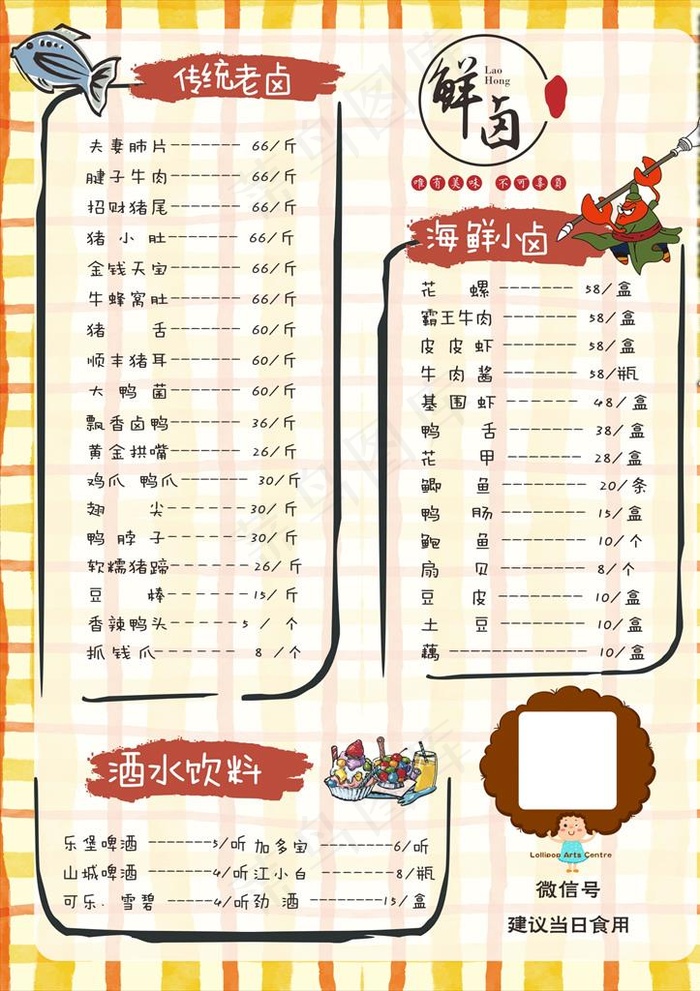 传统老卤
夫妻肺片------- 66/斤
腱子牛肉------- 66/斤
招财猪尾------- 66/斤
猪 小 肚------- 66/斤
金钱天宝------- 66/斤
牛蜂窝肚------- 66/斤
猪 舌------- 60/斤
顺丰猪耳------- 60/斤
大 鸭 菌------- 60/斤
飘香卤鸭------- 36/斤
黄金拱嘴------- 26/斤
鸡爪 鸭爪------- 30/斤
翅 尖------- 30/斤
鸭 脖 子------- 30/斤
软糯猪蹄------- 26/斤
豆 棒------- 15/斤
香辣鸭头------- 5 / 个
抓 钱 爪------- 8 /个
鲜卤
Lao
Hong
唯有美味 不可辜负
海鲜小卤
花 螺 ------- 58/盒
霸王牛肉 ------- 58/盒
皮 皮 虾 ------- 58/盒
牛 肉 酱 ------- 58/瓶
基 围 虾 ------- 48/盒
鸭 舌 ------- 38/盒
花 甲 ------- 28/盒
鲫 鱼 ------- 20/条
鸭 肠 ------- 15/盒
鲍 鱼 ------- 10/个
扇 贝 ------- 8/个
豆 皮 ------- 10/盒
土 豆 ------- 10/盒
藕 ------------- 10/盒
酒水饮料
乐堡啤酒 -------5/听 加多宝 --------6/听
山城啤酒 -------4/听 江小白 --------8/瓶
可乐. 雪碧 -----4/听 劲 酒 --------15/盒
Lollipop Arts Centre
微信号
建议当日食用